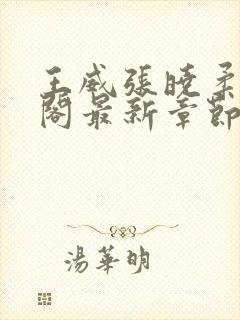 王威張曉柔
閣最新章節
湯華明